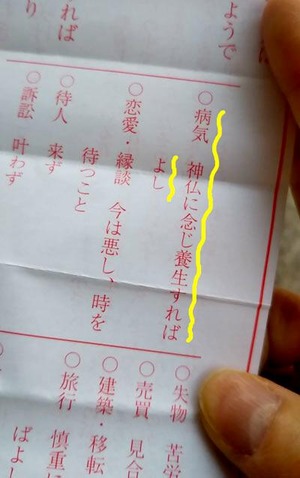 ようで
れば
り
○病気 神仏に念じ養生すれば
よし
○恋愛・縁談 今は悪し、時を
待つこと
○待人 来ず
○訴訟 叶わず
○失物 苦労
○売買 見合
○建築・移転
○旅行 慎重に
ばよし